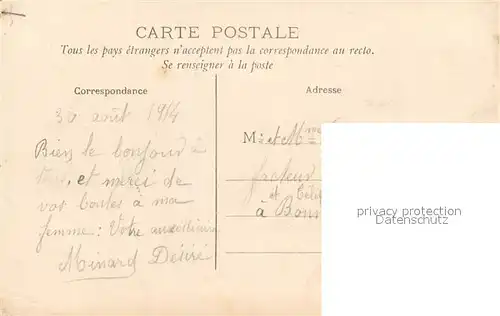 CARTE POSTALE
Tous les pays étrangers n'acceptent pas la correspondance au recto.
Se renseigner à la poste
Correspondance
Adresse
30 août 1914
Bien le bonjour à
et merci de
vos bontés à ma
femme : Votre
Minard Désiré
M. et Mme
facteur
et
à Bonn
privacy protection
Datenschutz